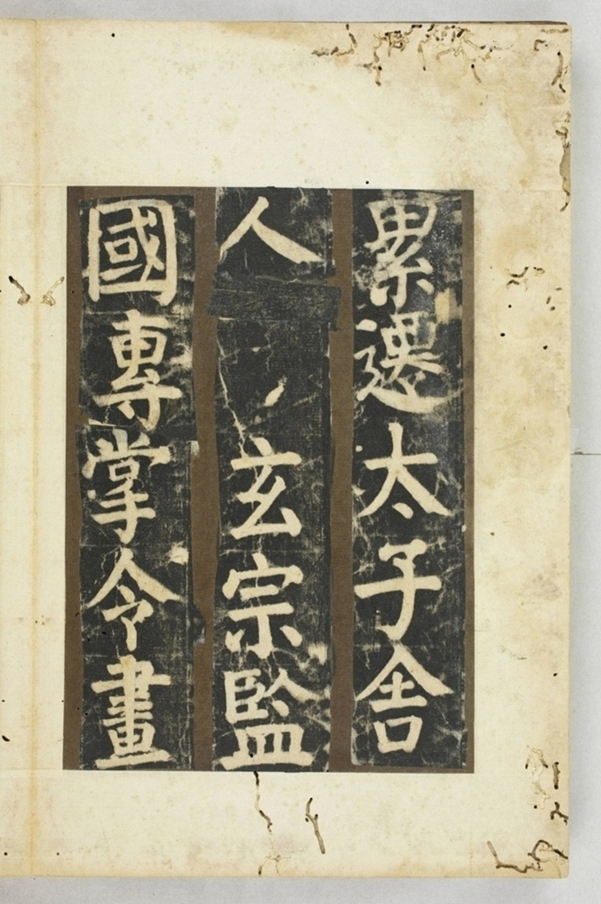 累遷太子舍
人玄宗監
國專掌令畫